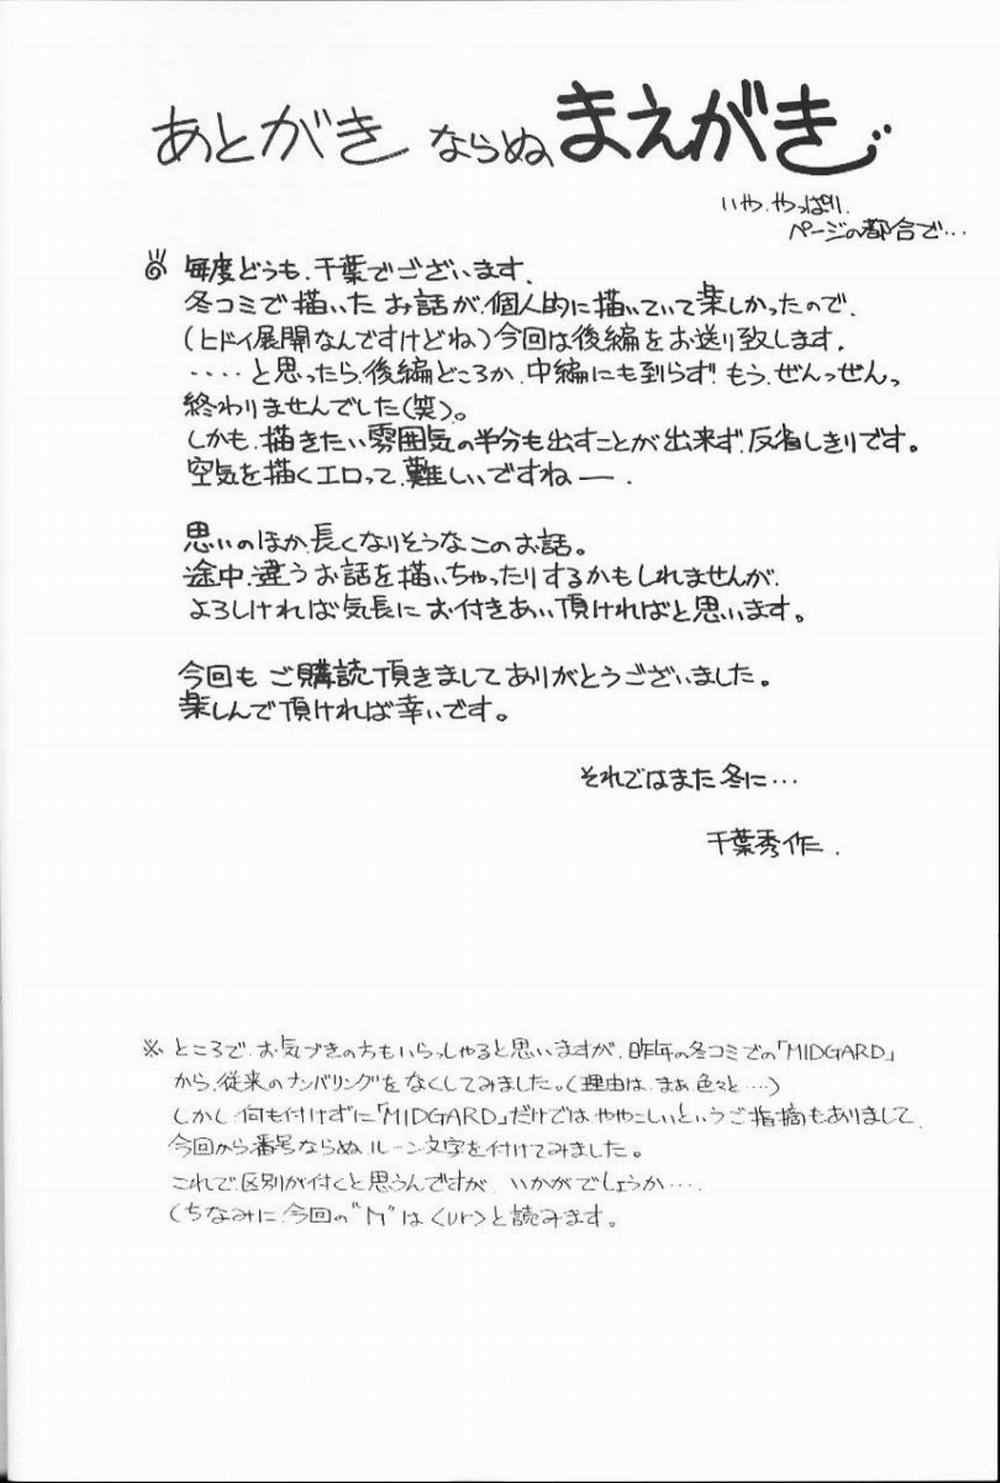 あとがき ならぬ まえがき
いや、やっぱり、
ページの都合で…
毎度どうも、千葉でございます。
冬コミで描いたお話が、個人的に描いていて楽しかったので、
(ヒドイ展開なんですけどね)今回は後編をお送り致します。
‥‥と思ったら、後編どころか、中編にも到らず、もう、ぜんっぜんっ
終わりませんでした(笑)。
しかも、描きたい雰囲気の半分も出すことが出来ず、反省しきりです。
空気を描くエロって、難しいですねー。
思いのほか、長くなりそうなこのお話。
途中、違うお話を描いちゃったりするかもしれませんが、
よろしければ気長にお付きあい頂ければと思います。
今回も ご購読頂きましてありがとうございました。
楽しんで頂ければ幸いです。
それではまた冬に…
千葉秀作.
※ ところで、お気づきの方もいらっしゃると思いますが、昨年の冬コミでの「MIDGARD」
から、従来のナンバリングをなくしてみました。(理由は、まぁ色々と‥‥)
しかし、何も付けずに「MIDGARD」だけではややこしいというご指摘もありまして、
今回から番号ならぬ、ルーン文字を付けてみました。
これで、区別が付くと思うんですが、いかがでしょうか‥‥.
(ちなみに、今回の"ᚢ"は<ur>と読みます。